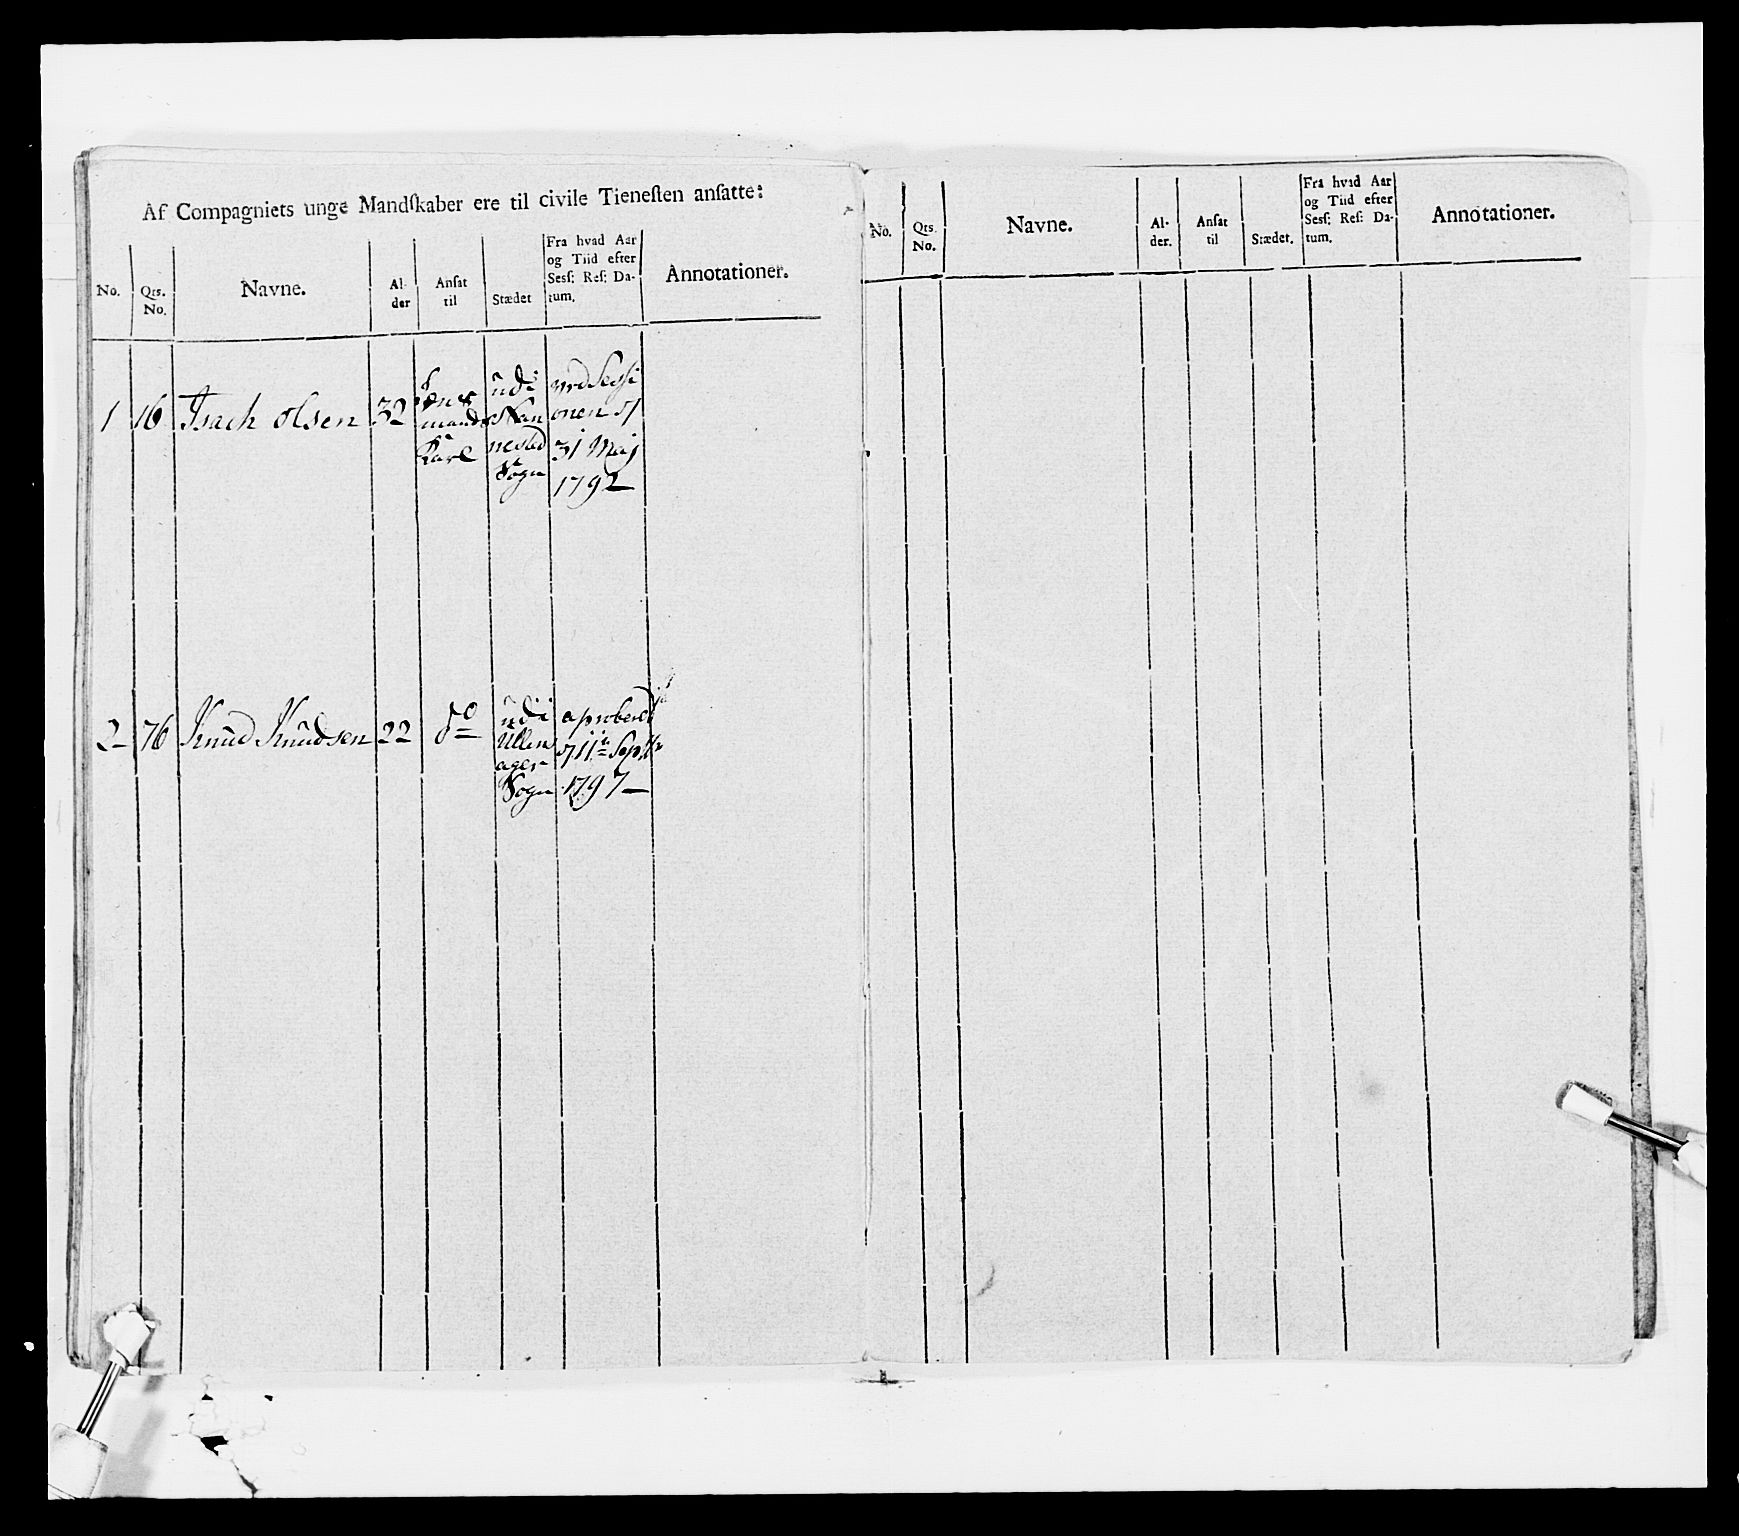 Af Compagniets unge Mandſkaber ere til civile Tieneſten anſatte:
No. Qrs. No. Navne. Al- der Anſat til Stædet Fra hvad Aar og Tiid efter Seſſ: Reſ: Da- tum. Annotationer.
1 16 Isach Olsen 32
Lens
mands
Karl
udi
Nan
nestad
Sogn
ved Sessi
onen d
31 Maij
1792
2 76 Knud Knudsen 22 do
udi
Ullens
ager
Sogn
aproberet
d 11te Septbr
1797
No. Qrs. No. Navne. Al- der. Anſat til Stædet. Fra hvad Aar og Tiid efter Seſſ: Reſ: Da- tum. Annotationer.